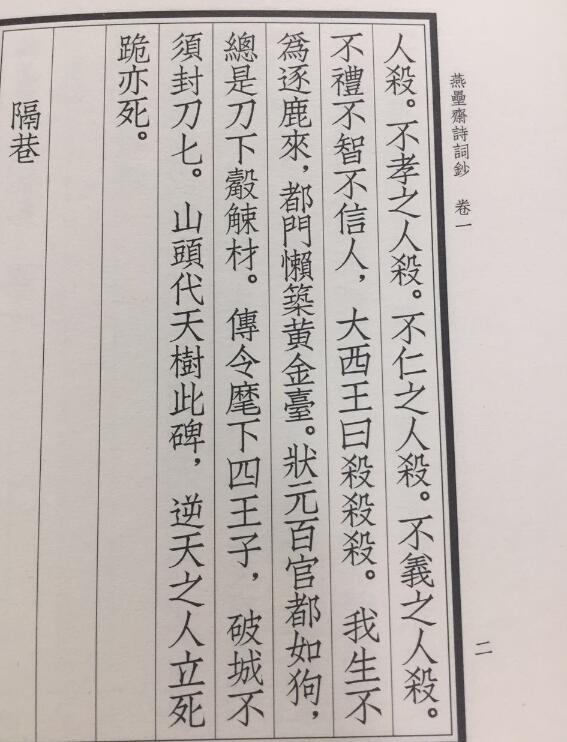 燕壘齋詩詞鈔 卷一
二
人殺。不孝之人殺。不仁之人殺。不義之人殺。
不禮不智不信人，大西王曰殺殺殺。我生不
為逐鹿來，都門懶築黃金臺。狀元百官都如狗，
總是刀下觳觫材。傳令麾下四王子，破城不
須封刀匕。山頭代天樹此碑，逆天之人立死
跪亦死。
隔巷